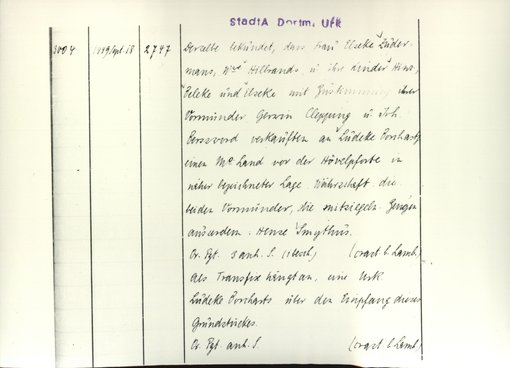 StadtA Dortm. Urk
3004 1499 Spt. 18 2747 Derselbe bekundet, dass Frau Elseke Lüder-
mans, Wwe Hilbrands u ihre Kinder Hins,
Beleke und Elseke mit Zustimmung ihrer
Vormünder Gerwin Clepping u Joh.
Berswoord verkauften an Lüdeke Borchartz
einen Mo Land vor der Hövelpforte in
näher bezeichneter Lage. Währschaft die
beiden Vormünder, die mitsiegeln. Zeugen
ausserdem: Hense Smythus.
Or. Pgt. 3 anh. S. (crast b. Lamb.)
Als Transfix hängt an, eine Urk
Lüdeke Borcharts über den Empfang dieses
Grundstückes.
Or. Pgt. anh. S. (crast b. Lamb.)